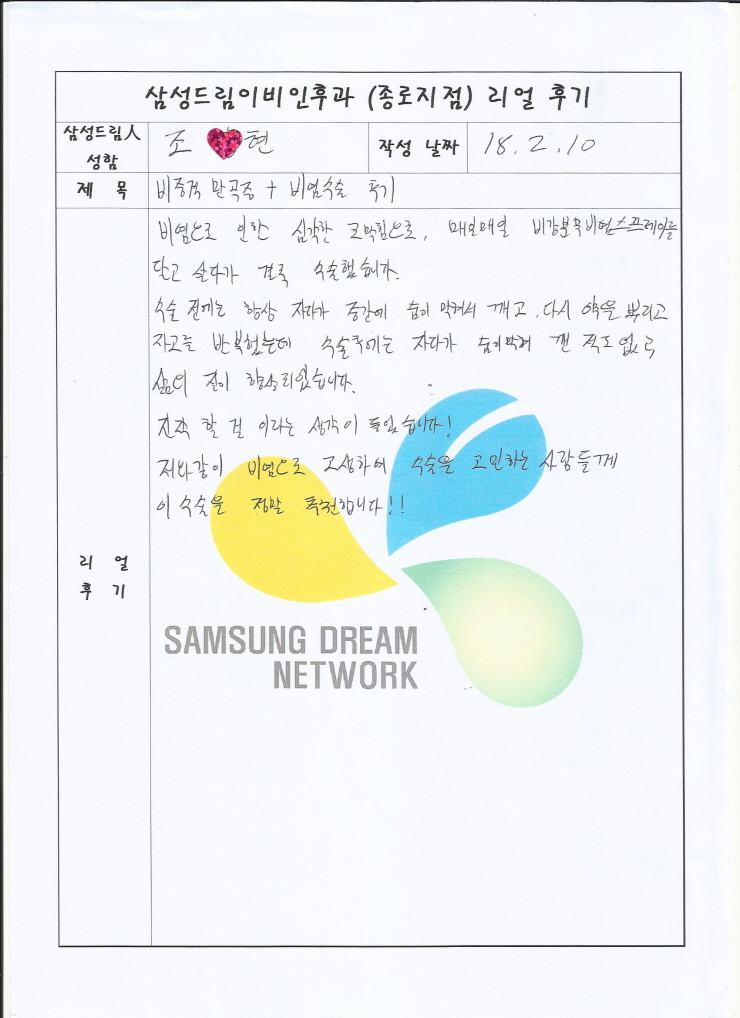 삼성드림이비인후과 (종로지점) 리얼 후기
삼성드림人 성함
조 현
작성 날짜
18. 2. 10
제 목
비중격 만곡증 + 비염수술 후기
비염으로 인한 심각한 코막힘으로, 매일매일 비강분무비염스프레이를
달고 살다가 결국 수술했습니다.
수술 전에는 항상 자다가 중간에 숨이 막혀서 깨고, 다시 약을 뿌리고
자고를 반복했는데 수술후에는 자다가 숨이막혀 깬 적도 없고,
삶의 질이 향상되었습니다.
진작 할 걸 이라는 생각이 들었습니다!
저와같이 비염으로 고생하여 수술을 고민하는 사람들께
이 수술을 정말 추천합니다!!
리 얼
후 기
SAMSUNG DREAM
NETWORK